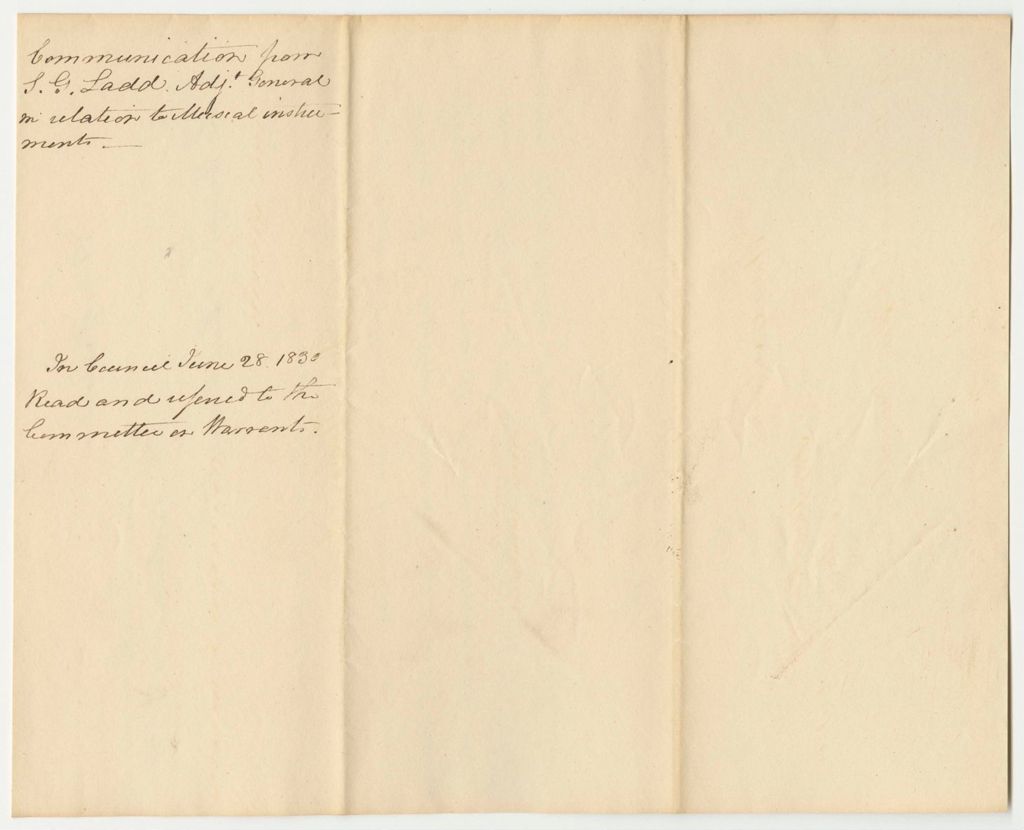 Communication from
S. G. Ladd. Adj.t General
in relation to Musical instru-
ments. —
In Council June 28. 1830
Read and referred to the
Committee on Warrants.